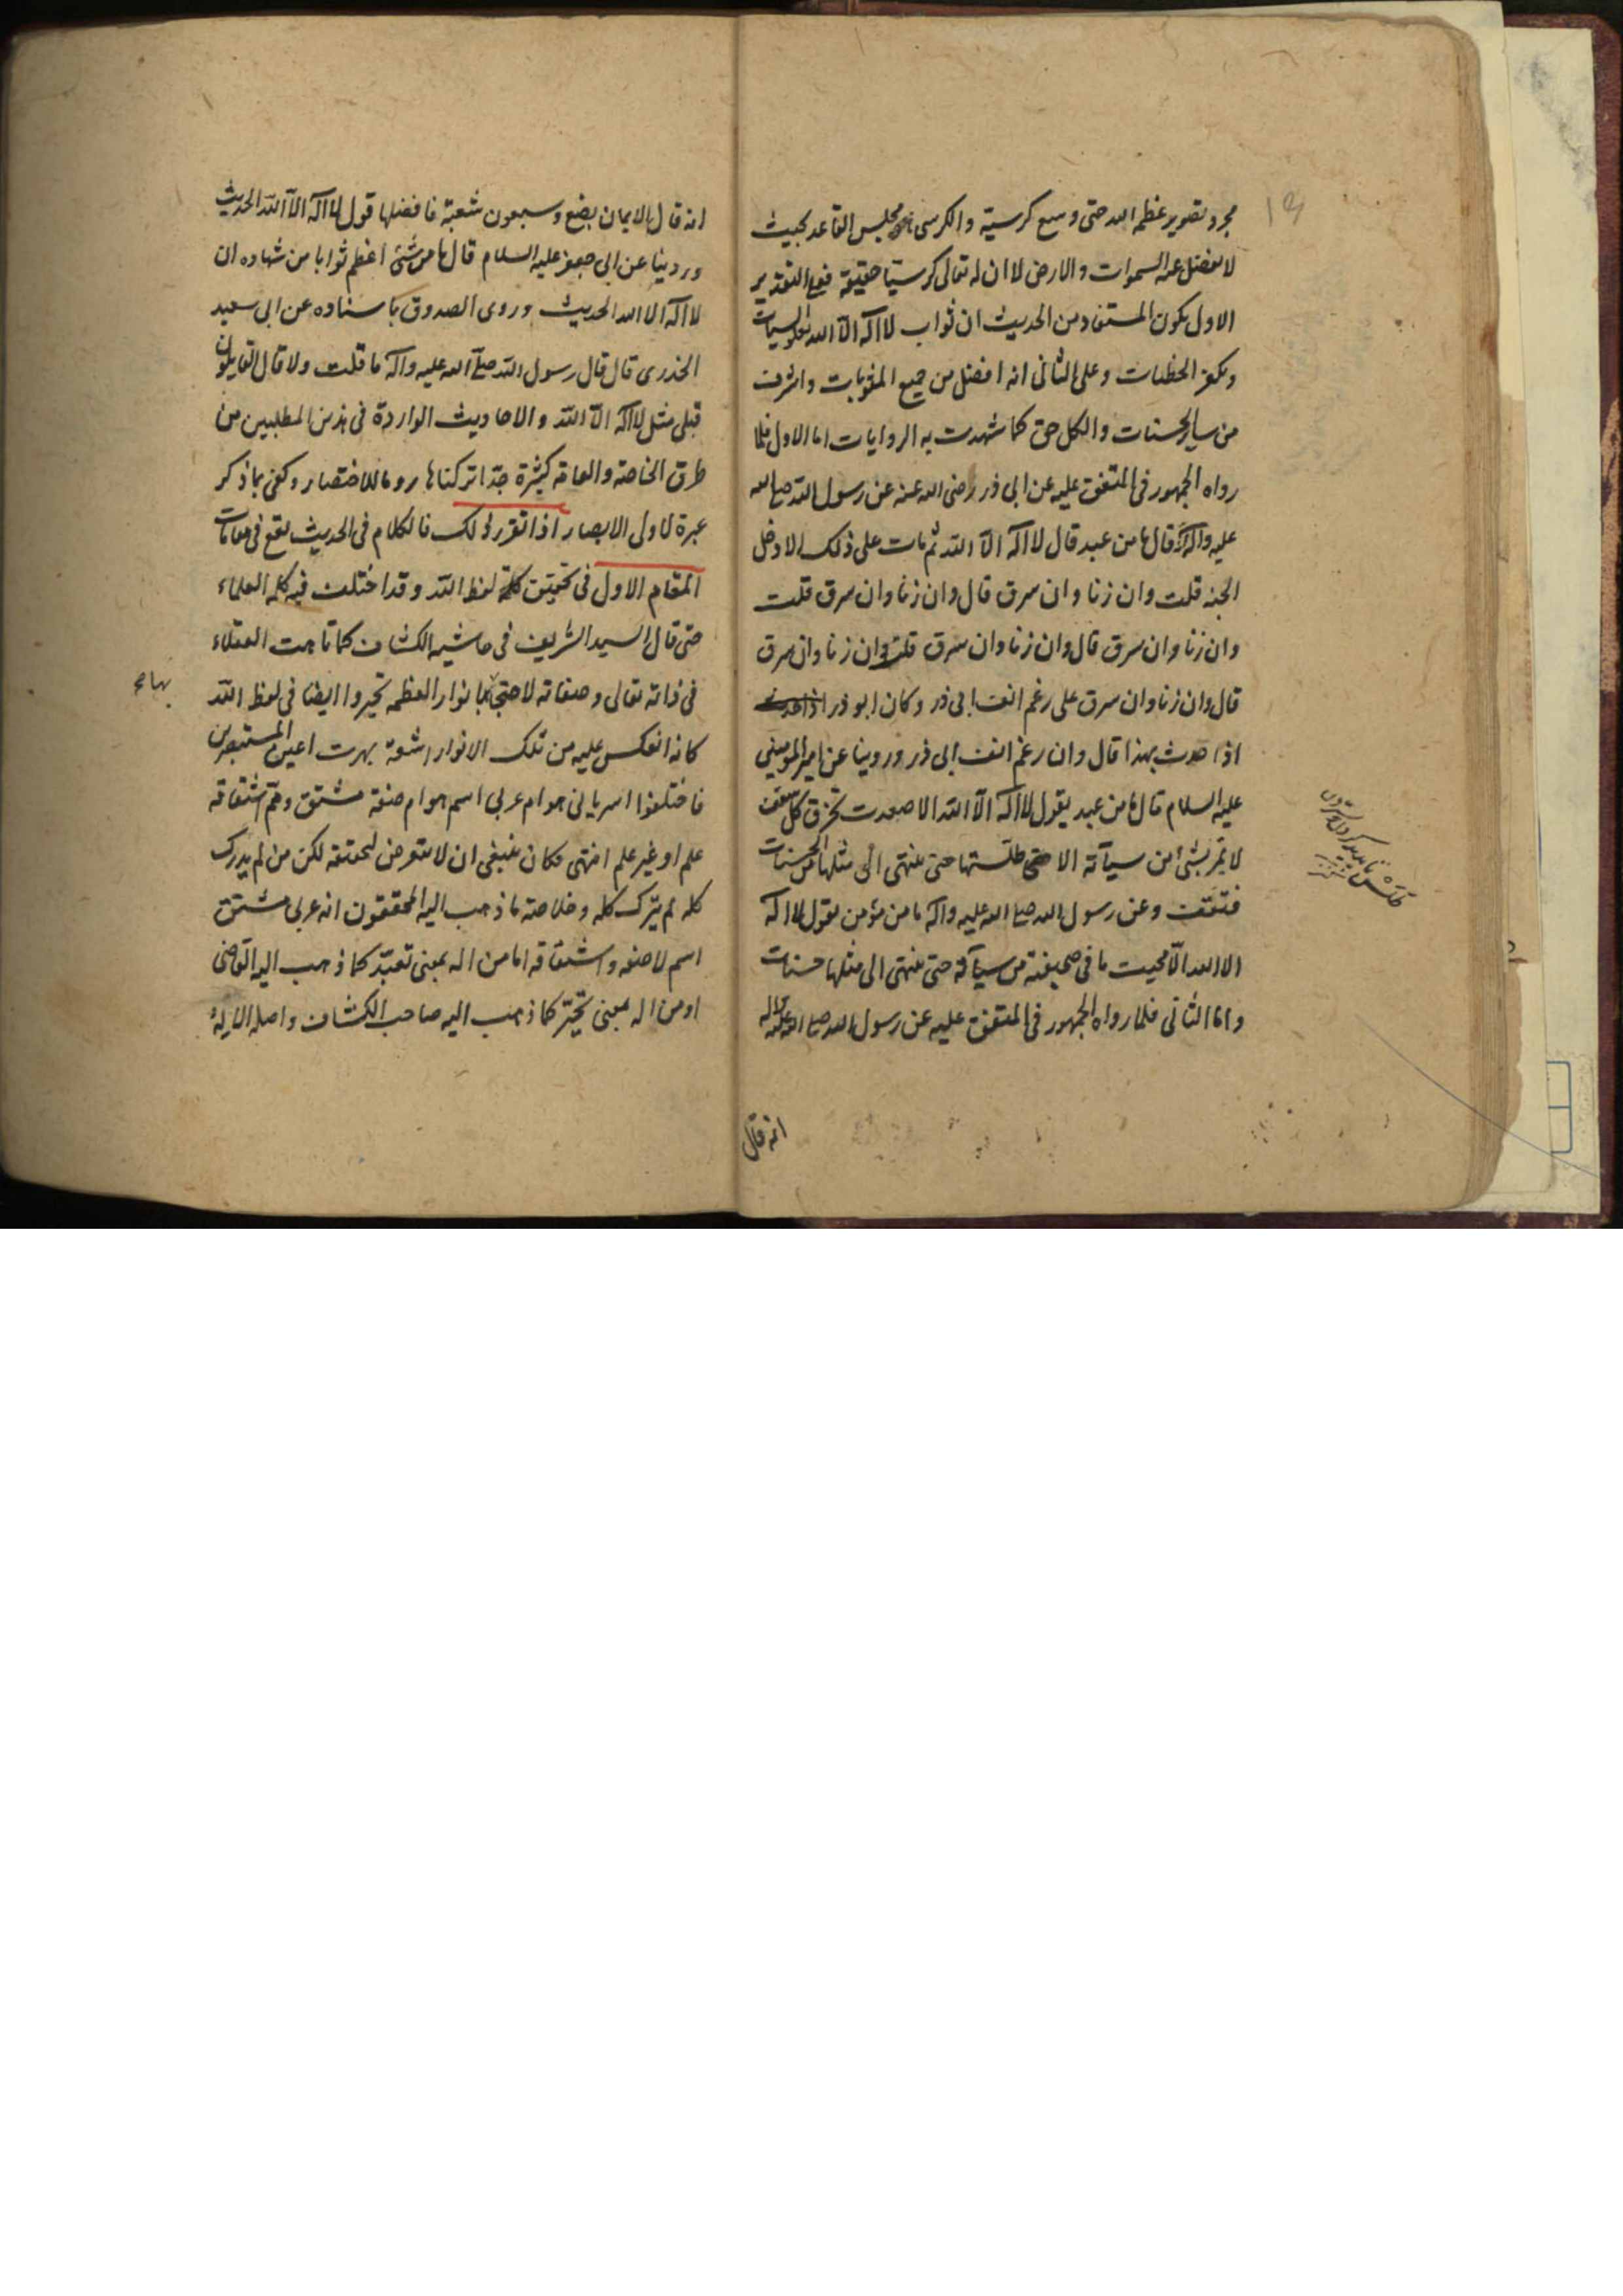 مجرد تصوير عظمة الله حتى وسع كرسيه والكرسى مجلس القاعد بحيث
لا يفضل عنه السموات والارض لا ان له تعالى كرسيا حقيقة فعلى التقدير
الاول يكون المستفاد من الحديث ان ثواب لا اله الا الله السيات
ويكفر الخطيات وعلى الثانى انه افضل من جميع المثوبات واشرف
من ساير الحسنات والكل حق كما شهدت به الروايات اما الاول فلما
رواه الجمهور فى المتفق عليه عن ابى ذر رضى الله عنه عن رسول الله صلى الله
عليه واله قال ما من عبد قال لا اله الا الله ثم مات على ذلك الا دخل
الجنه قلت وان زنا وان سرق قال وان زنا وان سرق قلت
وان زنا وان سرق قال وان زنا وان سرق قلت وان زنا وان سرق
قال وان زنا وان سرق على رغم انف ابى ذر وكان ابو ذر
اذا حدث بهذا قال وان رغم انف ابى ذر وروينا عن امير المومنين
عليه السلام قال ما من عبد يقول لا اله الا الله الا صعدت تخرق كل سقف
لا تمر بشئ من سيآته الا طلستها حتى تنتهى الى مثلها من الحسنات
فتقف وعن رسول الله صلى الله عليه واله ما من مؤمن يقول لا اله
الا الله الا محيت ما فى صحيفته من سيآته حتى تنتهى الى مثلها حسنات
واما الثانى فلما رواه الجمهور فى المتفق عليه عن رسول الله صلى الله عليه واله
انه قال
انه قال الايمان بضع وسبعون شعبة فافضلها قول لا اله الا الله الحديث
وروينا عن ابى جعفر عليه السلام قال ما من شئ اعظم ثوابا من شهاده ان
لا اله الا الله الحديث وروى الصدوق باسناده عن ابى سعيد
الخدرى قال قال رسول الله صلى الله عليه واله ما قلت ولا قال القايلون
قبلى مثل لا اله الا الله والاحاديث الواردة فى هذين المطلبين من
طرق الخاصة والعامة كثيرة جدا تركناها روما للاختصار وكفى بما ذكر
عبرة لاولى الابصار اذا تقرر ذلك فالكلام فى الحديث يقع فى مقامات
المقام الاول فى تحقيق كلمة لفظ الله وقد اختلف فيه كلمه العلماء
حتى قال السيد الشريف فى حاشيه الكشاف كما تاهت العقلاء
فى ذاته تعالى وصفاته لاحتجابها بانوار العظمه تحيروا ايضا فى لفظ الله
كانه انعكس عليه من تلك الانوار اشعة بهرت اعين المستبصرين
فاختلفوا اسريانى هو ام عربى اسم هو ام صفة مشتق ومم اشتقاقه
علم او غير علم انتهى وكان ينبغى ان لا نتعرض لتحقيقه لكن من لم يدرك
كله لم يترك كله وخلاصة ما ذهب اليه المحققون انه عربى مشتق
اسم لا صفه واشتقاقه اما من اله بمعنى تعبد كما ذهب اليه القاضى
او من اله بمعنى تحير كما ذهب اليه صاحب الكشاف واصله الاله